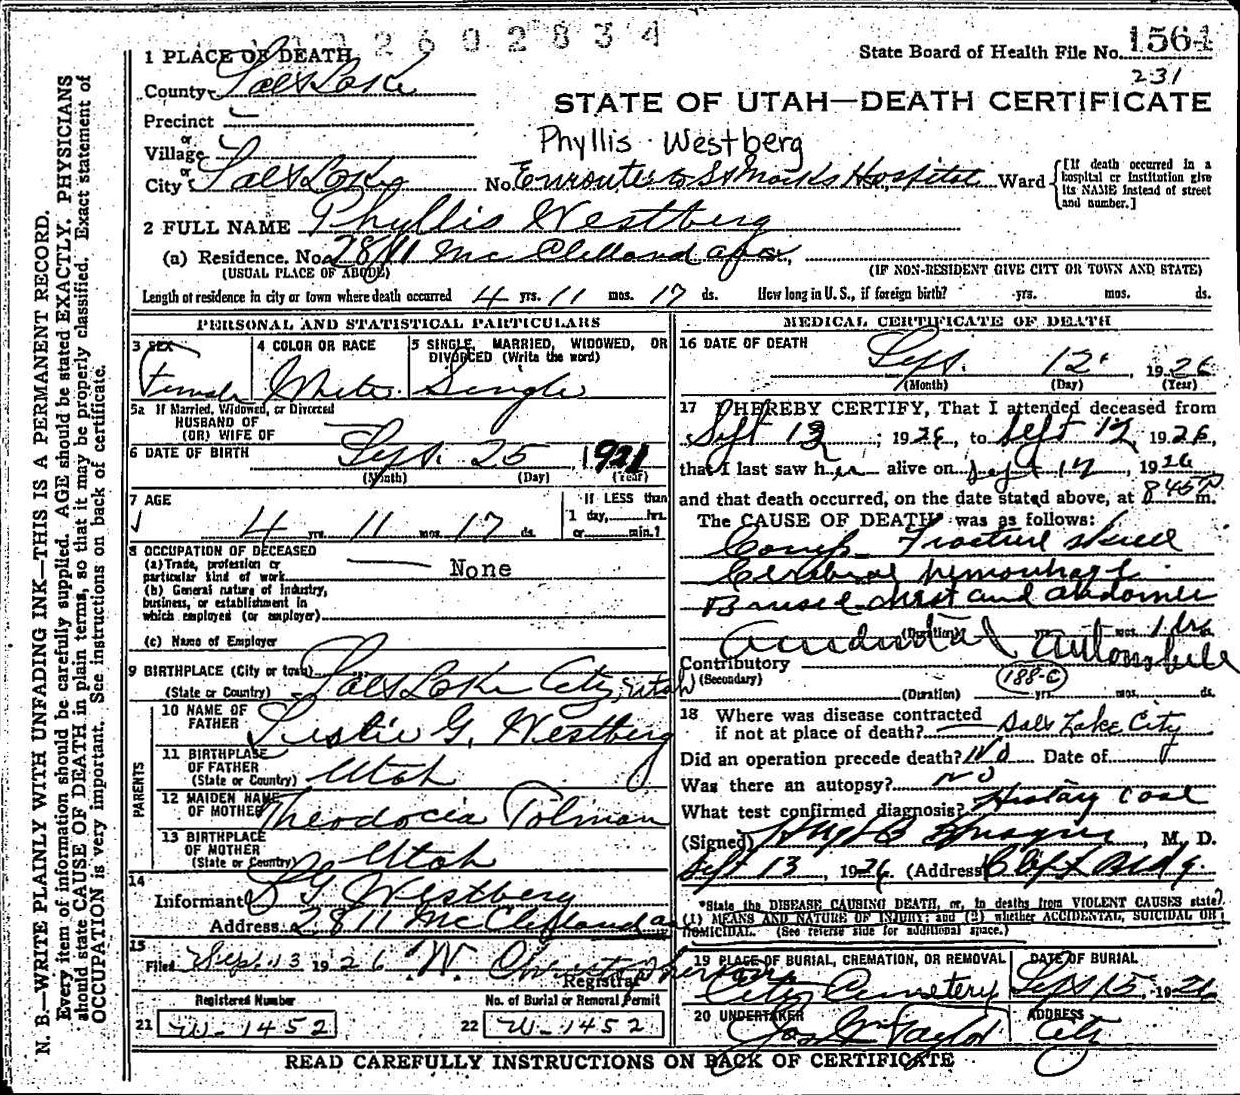 2602834
State Board of Health File No. 1564
231
1 PLACE OF DEATH
County Salt Lake
STATE OF UTAH—DEATH CERTIFICATE
Precinct
or
Village
Phyllis Westberg
or
City Salt Lake No. Enroute to St Marks Hospital Ward
[If death occurred in a hospital or institution give its NAME instead of street and number.]
2 FULL NAME Phyllis Westberg
(a) Residence. No. 2811 McClelland
(USUAL PLACE OF ABODE) (IF NON-RESIDENT GIVE CITY OR TOWN AND STATE)
Length of residence in city or town where death occurred 4 yrs. 11 mos. 17 ds. How long in U. S., if foreign birth? yrs. mos. ds.
PERSONAL AND STATISTICAL PARTICULARS
3 SEX Female
4 COLOR OR RACE White
5 SINGLE, MARRIED, WIDOWED, OR DIVORCED (Write the word) Single
5a If Married, Widowed, or Divorced
HUSBAND OF
(OR) WIFE OF
6 DATE OF BIRTH Sept. 25 1921
(Month) (Day) (Year)
7 AGE
4 yrs. 11 mos. 17 ds.
If LESS than
1 day, hrs.
or min.?
8 OCCUPATION OF DECEASED
(a) Trade, profession or
particular kind of work None
(b) General nature of industry,
business, or establishment in
which employed (or employer)
(c) Name of Employer
9 BIRTHPLACE (City or town) Salt Lake City, Utah
(State or Country)
PARENTS
10 NAME OF FATHER Leslie G. Westberg
11 BIRTHPLACE OF FATHER (State or Country) Utah
12 MAIDEN NAME OF MOTHER Theodocia Tolman
13 BIRTHPLACE OF MOTHER (State or Country) Utah
14
Informant L G Westberg
Address 2811 McClelland
15
Filed Sept. 13 1926 W.
Registrar
Registered Number No. of Burial or Removal Permit
21 W-1452 22 W-1452
MEDICAL CERTIFICATE OF DEATH
16 DATE OF DEATH
Sept. 12 1926
(Month) (Day) (Year)
17 I HEREBY CERTIFY, That I attended deceased from
Sept 12, 1926, to Sept 12, 1926,
that I last saw her alive on Sept 12, 1926
and that death occurred, on the date stated above, at 845 P m.
The CAUSE OF DEATH* was as follows:
Comp. Fracture skull
Cerebral hemorrhage
Bruised chest and abdomen
(Duration) yrs. mos. 1 hrs
Accidental Automobile
Contributory
(Secondary) 188-c
(Duration) yrs. mos. ds.
18 Where was disease contracted
if not at place of death? Salt Lake City
Did an operation precede death? No Date of
Was there an autopsy? No
What test confirmed diagnosis? History case
(Signed) M. D.
Sept 13, 1926 (Address) Clift Bldg.
*State the DISEASE CAUSING DEATH, or, in deaths from VIOLENT CAUSES state
(1) MEANS AND NATURE OF INJURY; and (2) whether ACCIDENTAL, SUICIDAL OR
HOMICIDAL. (See reverse side for additional space.)
19 PLACE OF BURIAL, CREMATION, OR REMOVAL City Cemetery
DATE OF BURIAL Sept 15, 1926
20 UNDERTAKER Jos Wm Taylor
ADDRESS City
READ CAREFULLY INSTRUCTIONS ON BACK OF CERTIFICATE
N. B.—WRITE PLAINLY WITH UNFADING INK—THIS IS A PERMANENT RECORD.
Every item of information should be carefully supplied. AGE should be stated EXACTLY. PHYSICIANS
should state CAUSE OF DEATH in plain terms, so that it may be properly classified. Exact statement of
OCCUPATION is very important. See instructions on back of certificate.